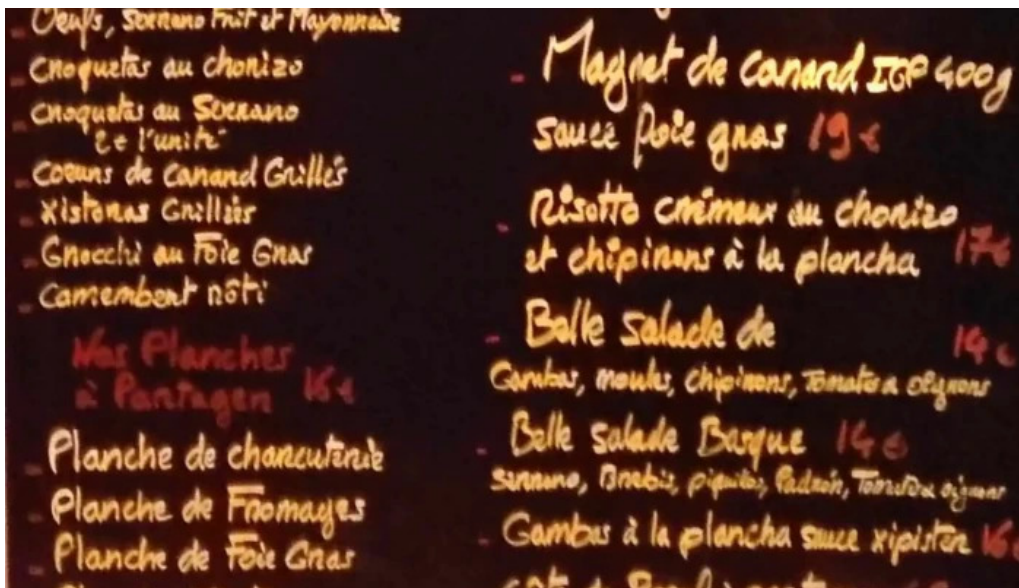 - Oeufs, Serrano Frit et Mayonnaise
- Croquetas au chorizo
- Croquetas au Serrano
2€ l'unité
- Coeurs de Canard Grillés
- Xistorras Grillées
- Gnocchi au Foie Gras
- Camembert rôti
Nos Planches
à Partager 16€
- Planche de charcuterie
- Planche de Fromages
- Planche de Foie Gras
- Magret de canard IGP 400g
sauce foie gras 19€
- Risotto crémeux au chorizo
et chipirons à la plancha 17€
- Belle salade de 14€
Gambas, moules, chipirons, Tomates & oignons
- Belle salade Basque 14€
Serrano, Brebis, piquillos, Padrón, Tomates & oignons
- Gambas à la plancha sauce xipister 16€